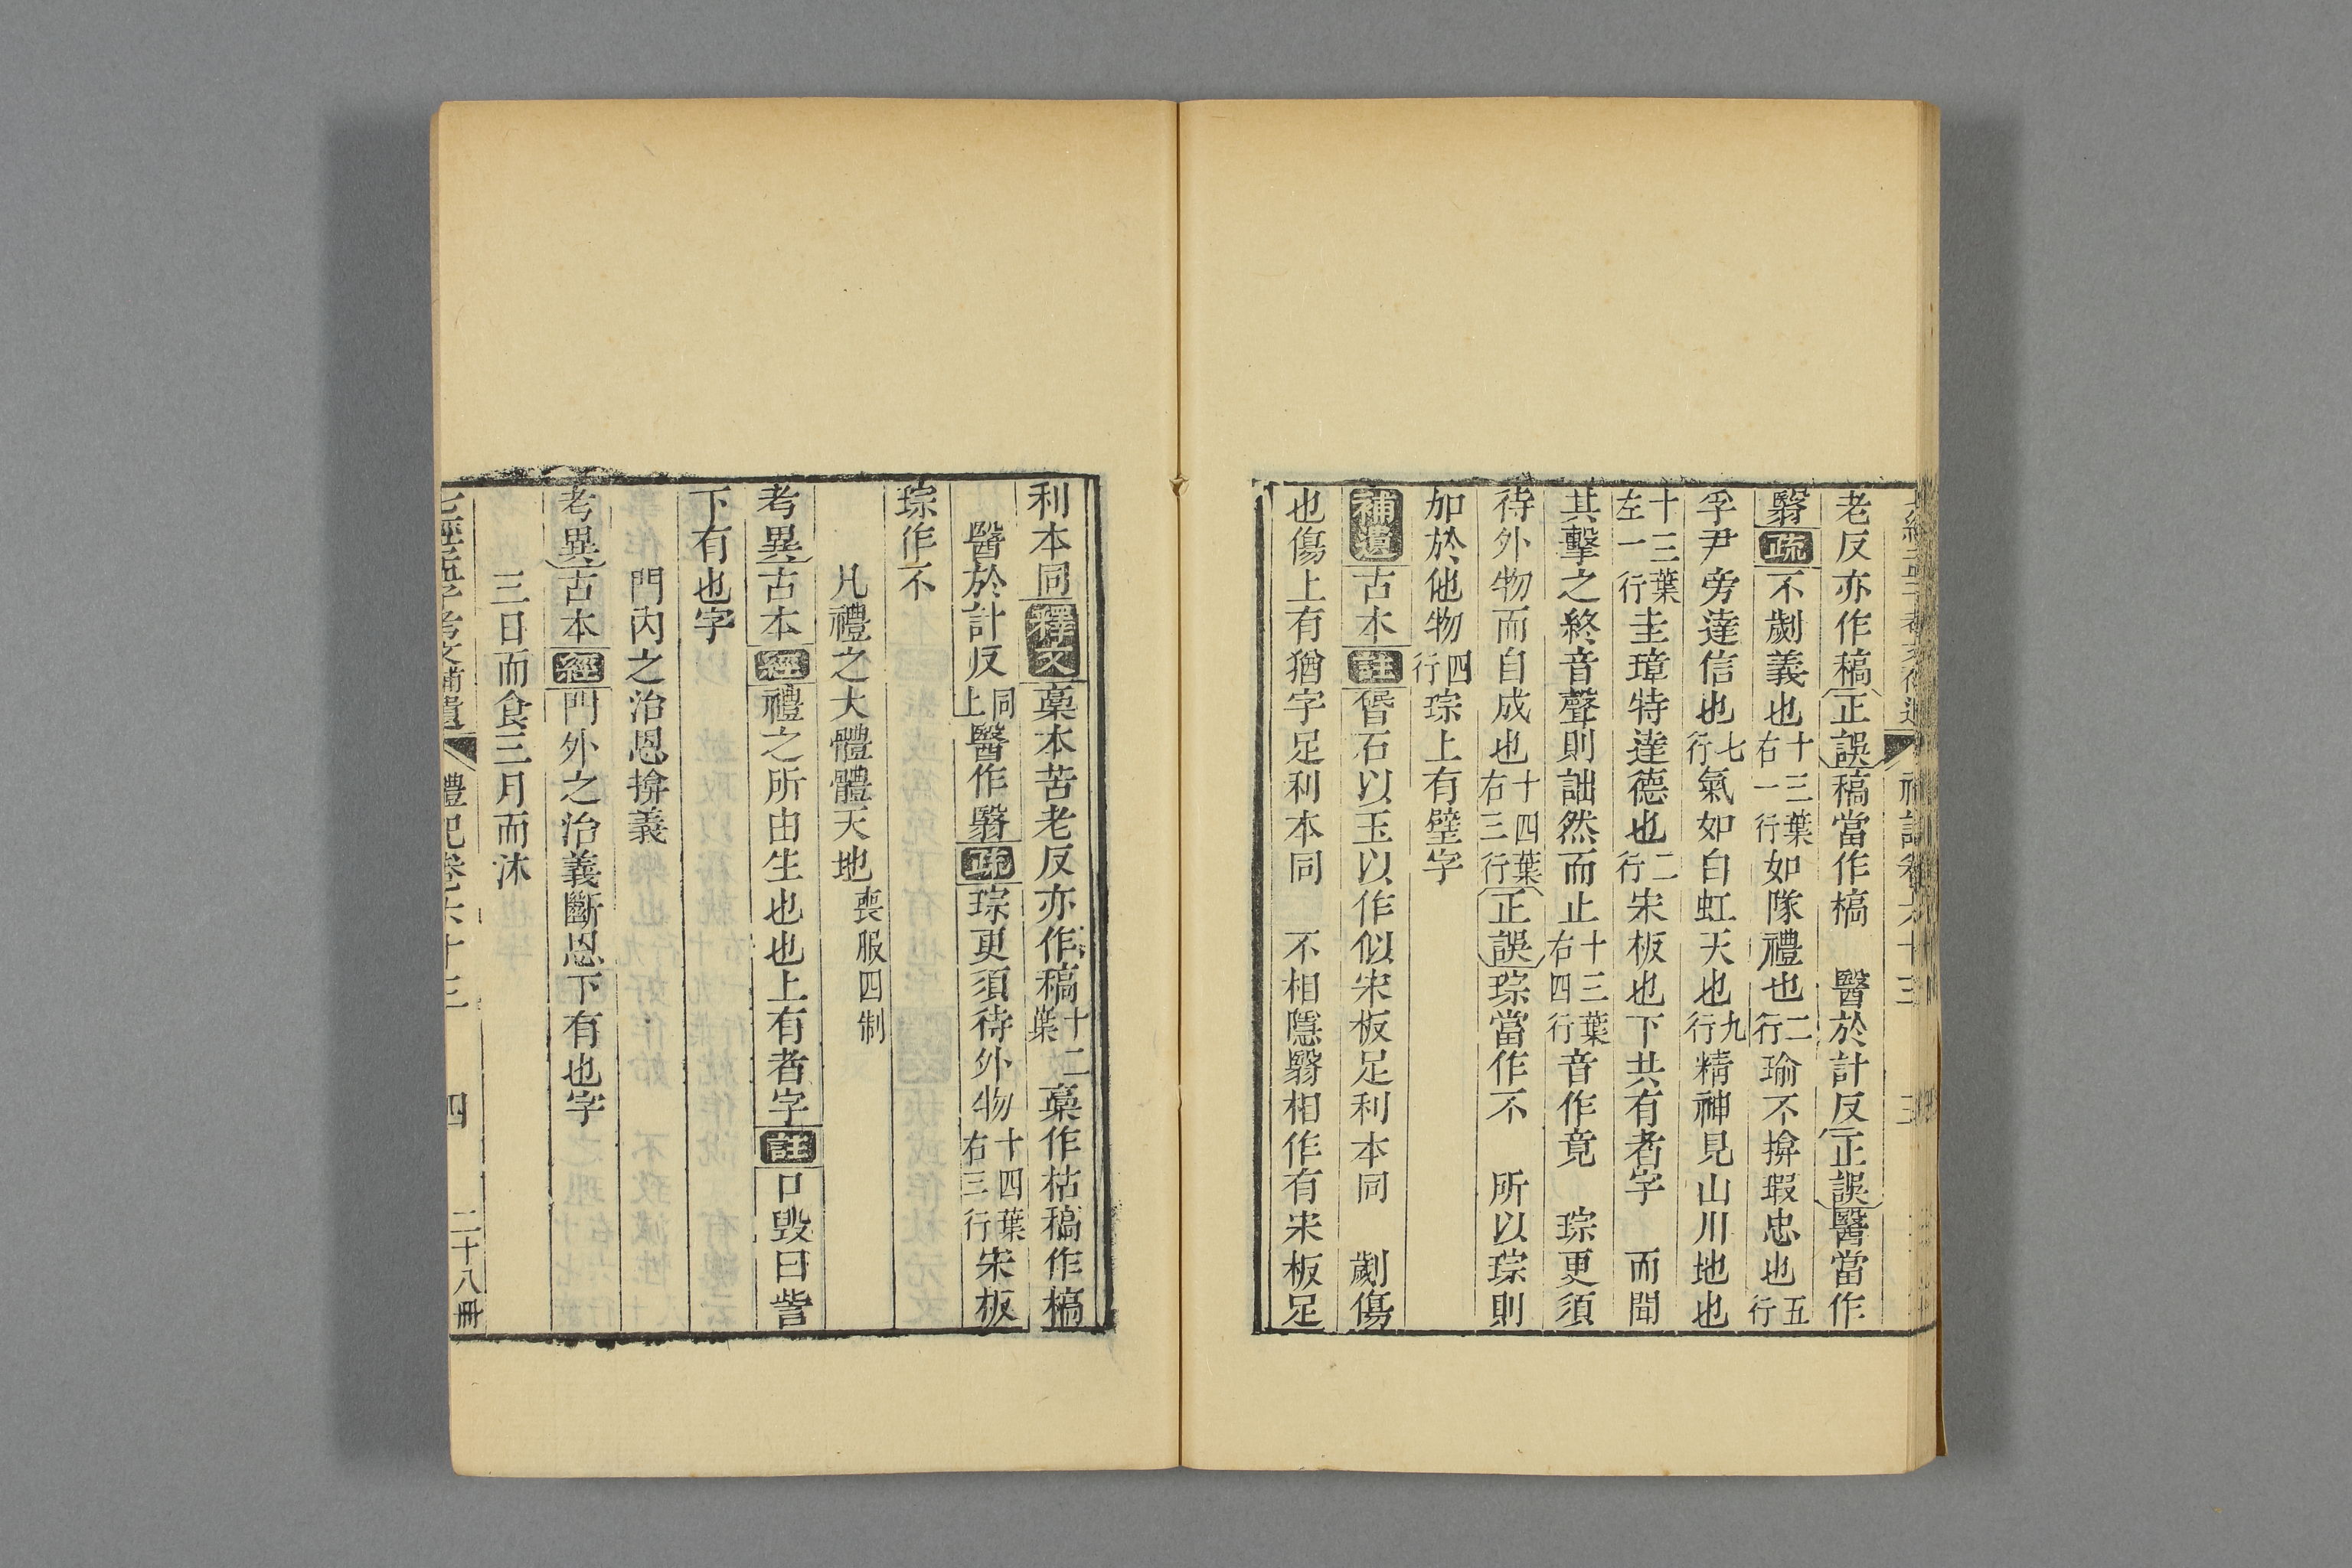 老反亦作稿正誤稿當作槁　醫於計反正誤醫當作
翳疏不劌義也十三葉右一行如隊禮也二行瑜不揜瑕忠也五行
孚尹旁達信也七行氣如白虹天也九行精神見山川地也
十三葉左一行圭璋特達德也二行宋板也下共有者字　而間
其擊之終音聲則詘然而止十三葉右四行音作竟　琮更須
待外物而自成也十四葉右三行正誤琮當作不　所以琮則
加於他物四行琮上有璧字
補遺古本註㟭石以玉以作似宋板足利本同　劌傷
也傷上有猶字足利本同　不相隱翳相作有宋板足
利本同釋文藁本苦老反亦作稿十二葉藁作枯稿作槁
醫於計反同上醫作翳疏琮更須待外物十四葉右三行宋板
琮作不
凡禮之大體體天地喪服四制
考異古本經禮之所由生也也上有者字註口毀曰訾
下有也字
門內之治恩揜義
考異古本經門外之治義斷恩下有也字
三日而食三月而沐
七經孟子考文補遺　禮記卷六十三　四　二十八冊